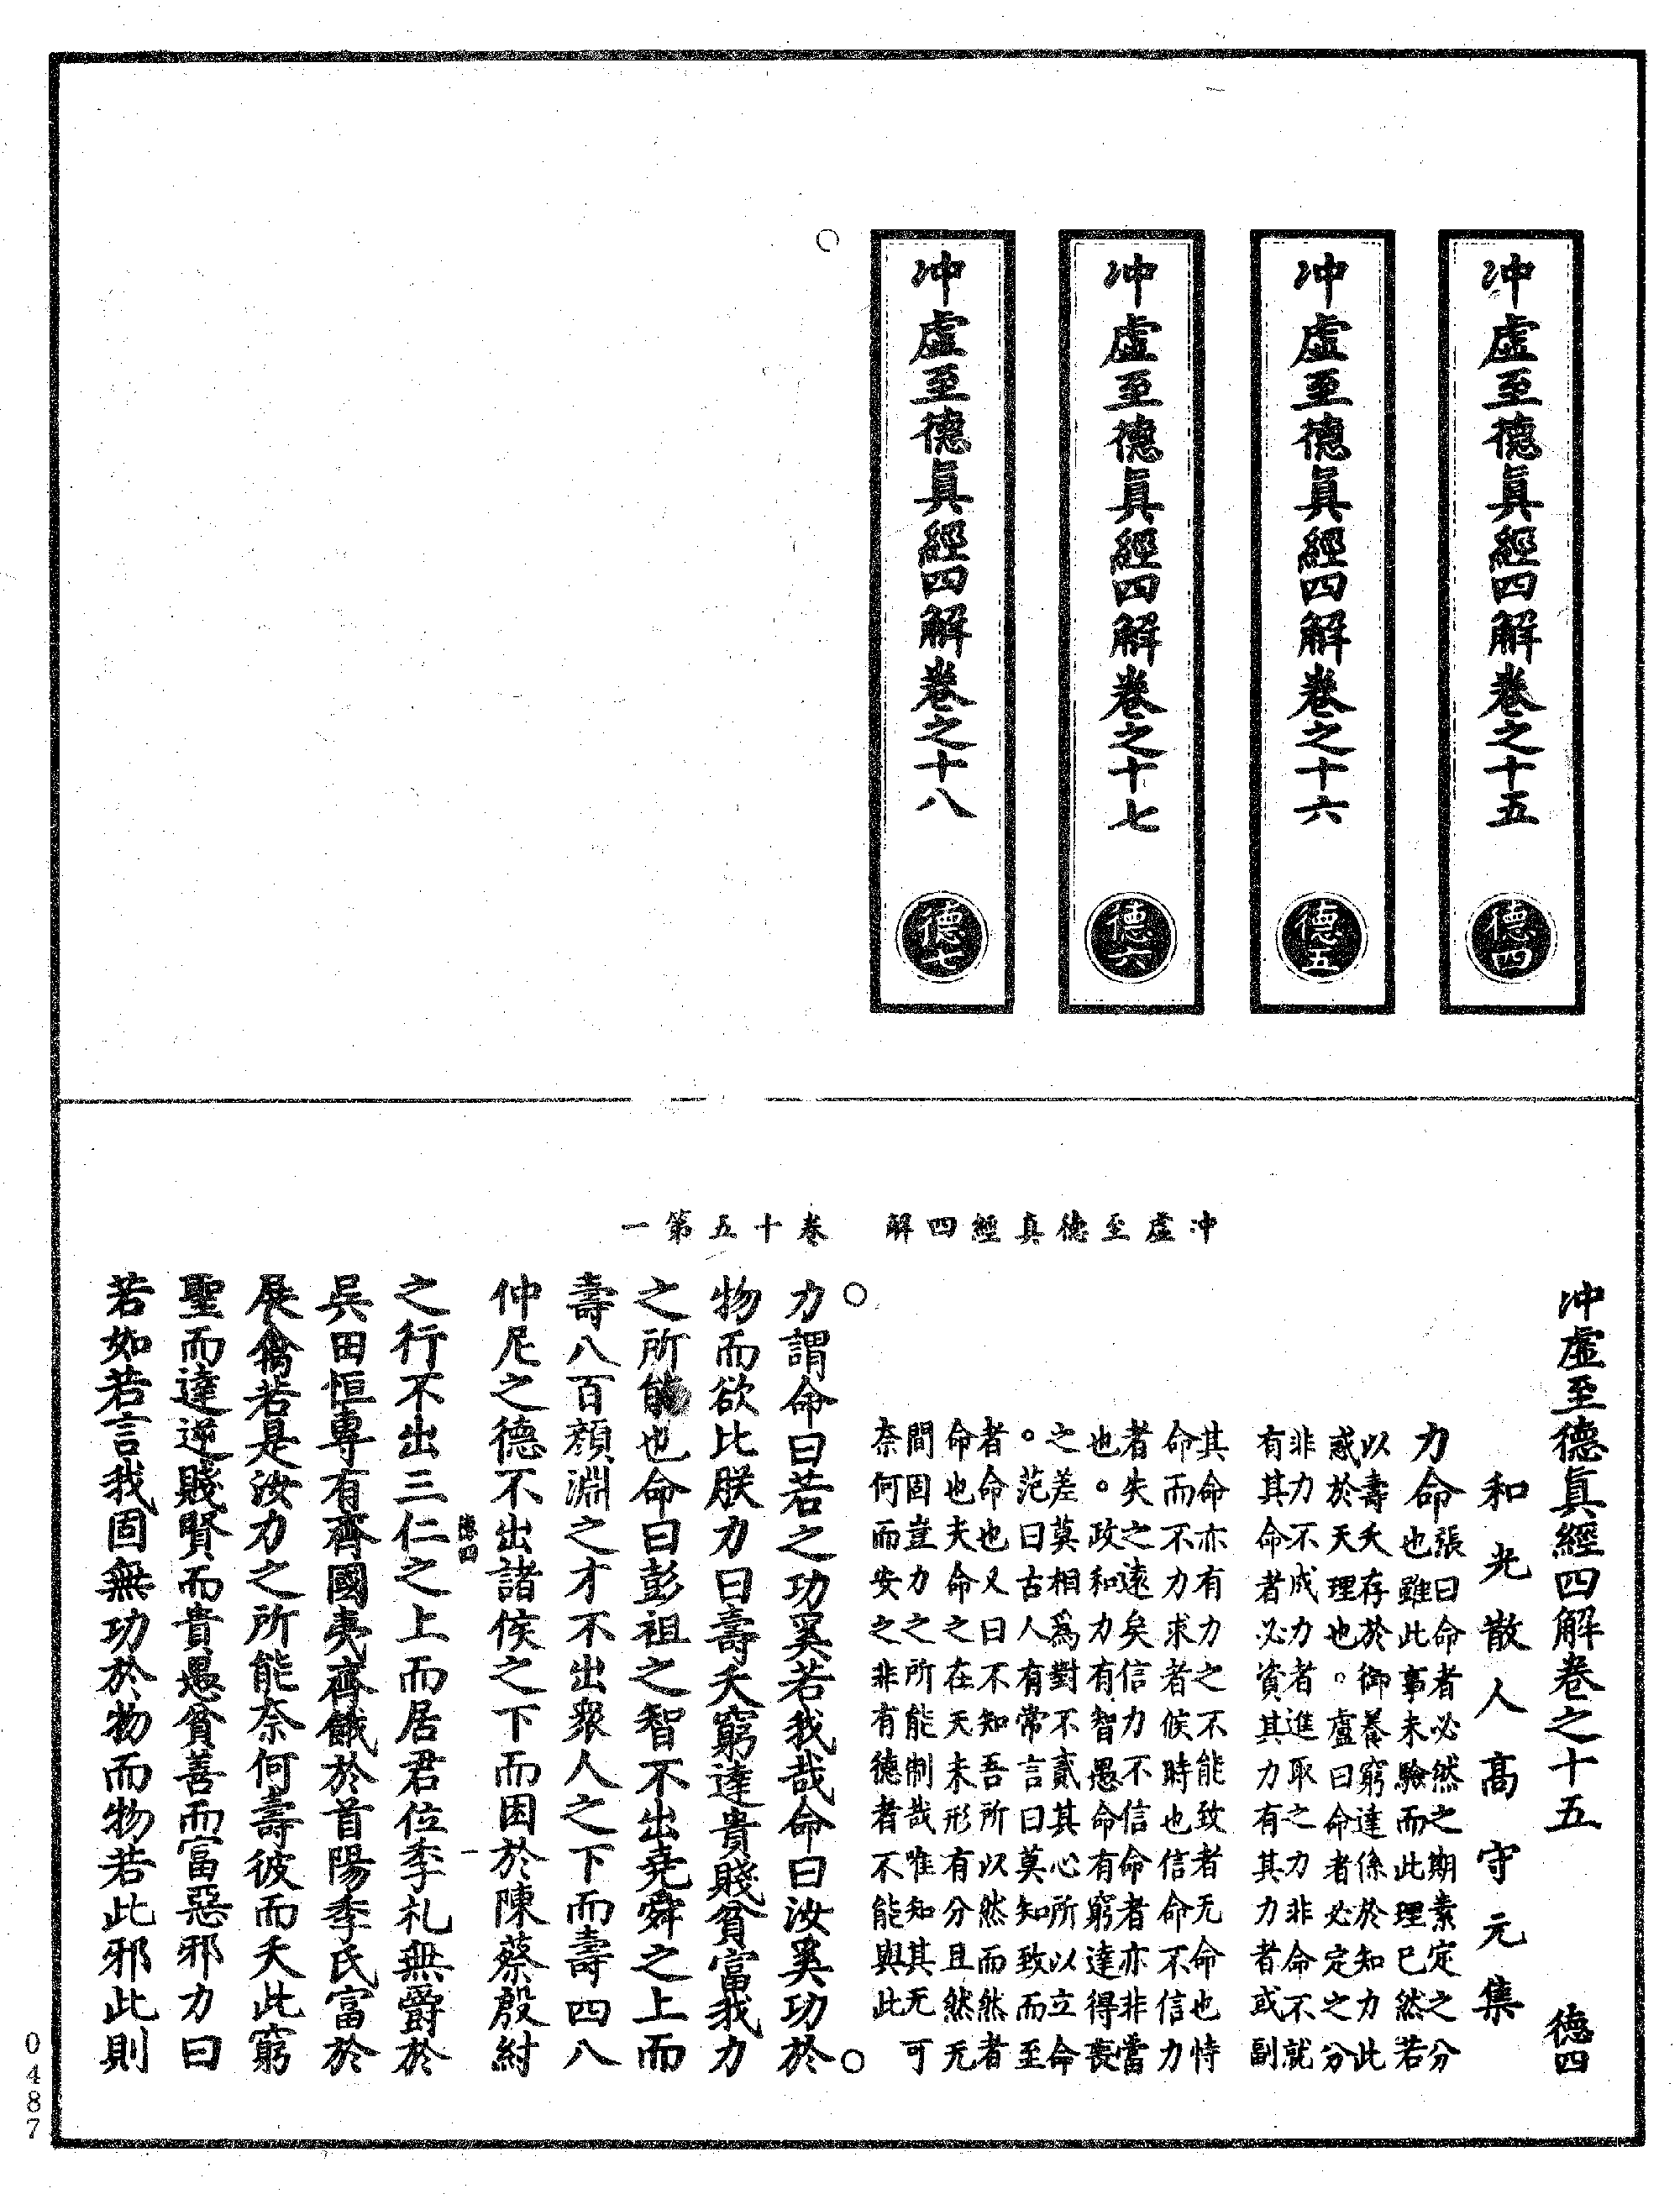 冲虛至德眞經四解卷之十五 德四
冲虛至德眞經四解卷之十六 德五
冲虛至德眞經四解卷之十七 德六
冲虛至德眞經四解卷之十八 德七
○
冲虛至德真經四解 卷十五第一
冲虛至德眞經四解卷之十五 德四
和光散人高守元集
力命張曰命者必然之期素定之分
也雖此事未驗而此理已然若
以壽夭存於御養窮達係於知力此
惑於天理也。盧曰命者必定之分
非力不成力者進取之力非命不就
有其命者必資其力有其力者或副
其命亦有力之不能致者无命也恃
命而不力求者候時也信命不信力
者失之遠矣信力不信命者亦非當
也。政和力有智愚命有窮達得喪
之差莫相爲對不貳其心所以立命
。范曰古人有常言曰莫知致而至
者命也又曰不知吾所以然而然者
命也夫命之在天未形有分且然无
間固豈力之所能制哉唯知其无可
奈何而安之非有德者不能與此
○力謂命曰若之功奚若我哉命曰汝奚功於○
物而欲比朕力曰壽夭窮達貴賤貧富我力
之所能也命曰彭祖之智不出堯舜之上而
壽八百顏淵之才不出衆人之下而壽四八
仲尼之德不出諸侯之下而困於陳蔡殷紂
德四 一
之行不出三仁之上而居君位季札無爵於
吳田恒專有齊國夷齊餓於首陽季氏富於
展禽若是汝力之所能奈何壽彼而夭此窮
聖而達逆賤賢而貴愚貧善而富惡邪力曰
若如若言我固無功於物而物若此邪此則
0487